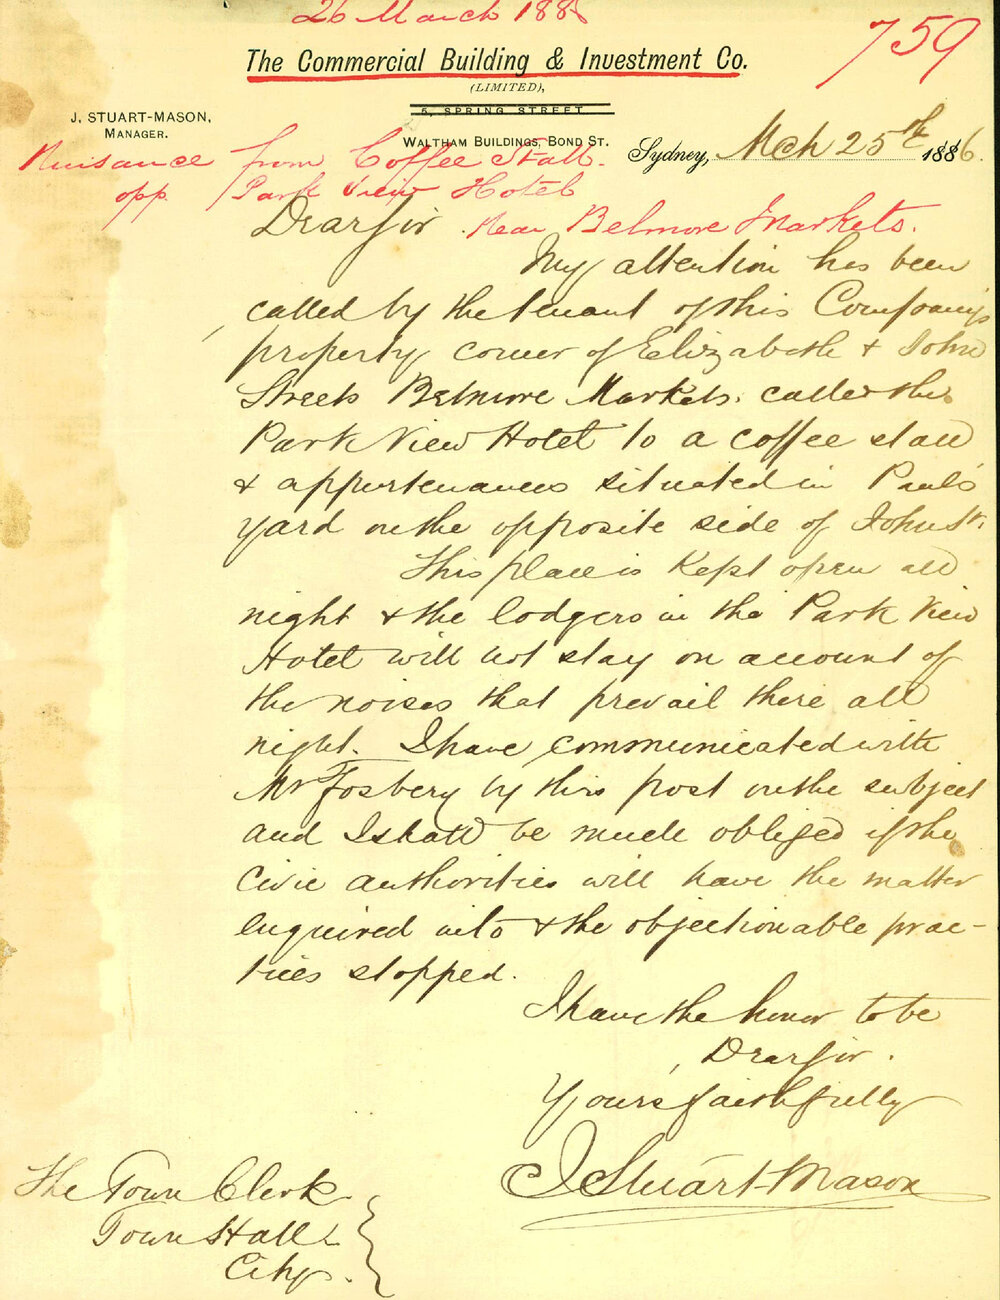 26 March 1886
759
The Commercial Building & Investment Co.
(LIMITED),
5, SPRING STREET
J. STUART-MASON,
MANAGER.
WALTHAM BUILDINGS, BOND ST.
Sydney, Mch 25th 1886.
Nuisance from Coffee Stall.
opp. Park View Hotel
near Belmore Markets.
Dear Sir
My attention has been
called by the tenant of this Company's
property corner of Elizabeth & John
Streets Belmore Markets. called the
Park View Hotel to a coffee stall
& appurtenances situated in Paul's
yard on the opposite side of John St.
This place is kept open all
night & the lodgers in the Park View
Hotel will not stay on account of
the noises that prevail there all
night. I have communicated with
Mr Fosbery by this post on the subject
and I shall be much obliged if the
Civic authorities will have the matter
enquired into & the objectionable prac-
tices stopped.
I have the honor to be
Dear Sir.
Yours faithfully
J Stuart-Mason
The Town Clerk
Town Hall
City.